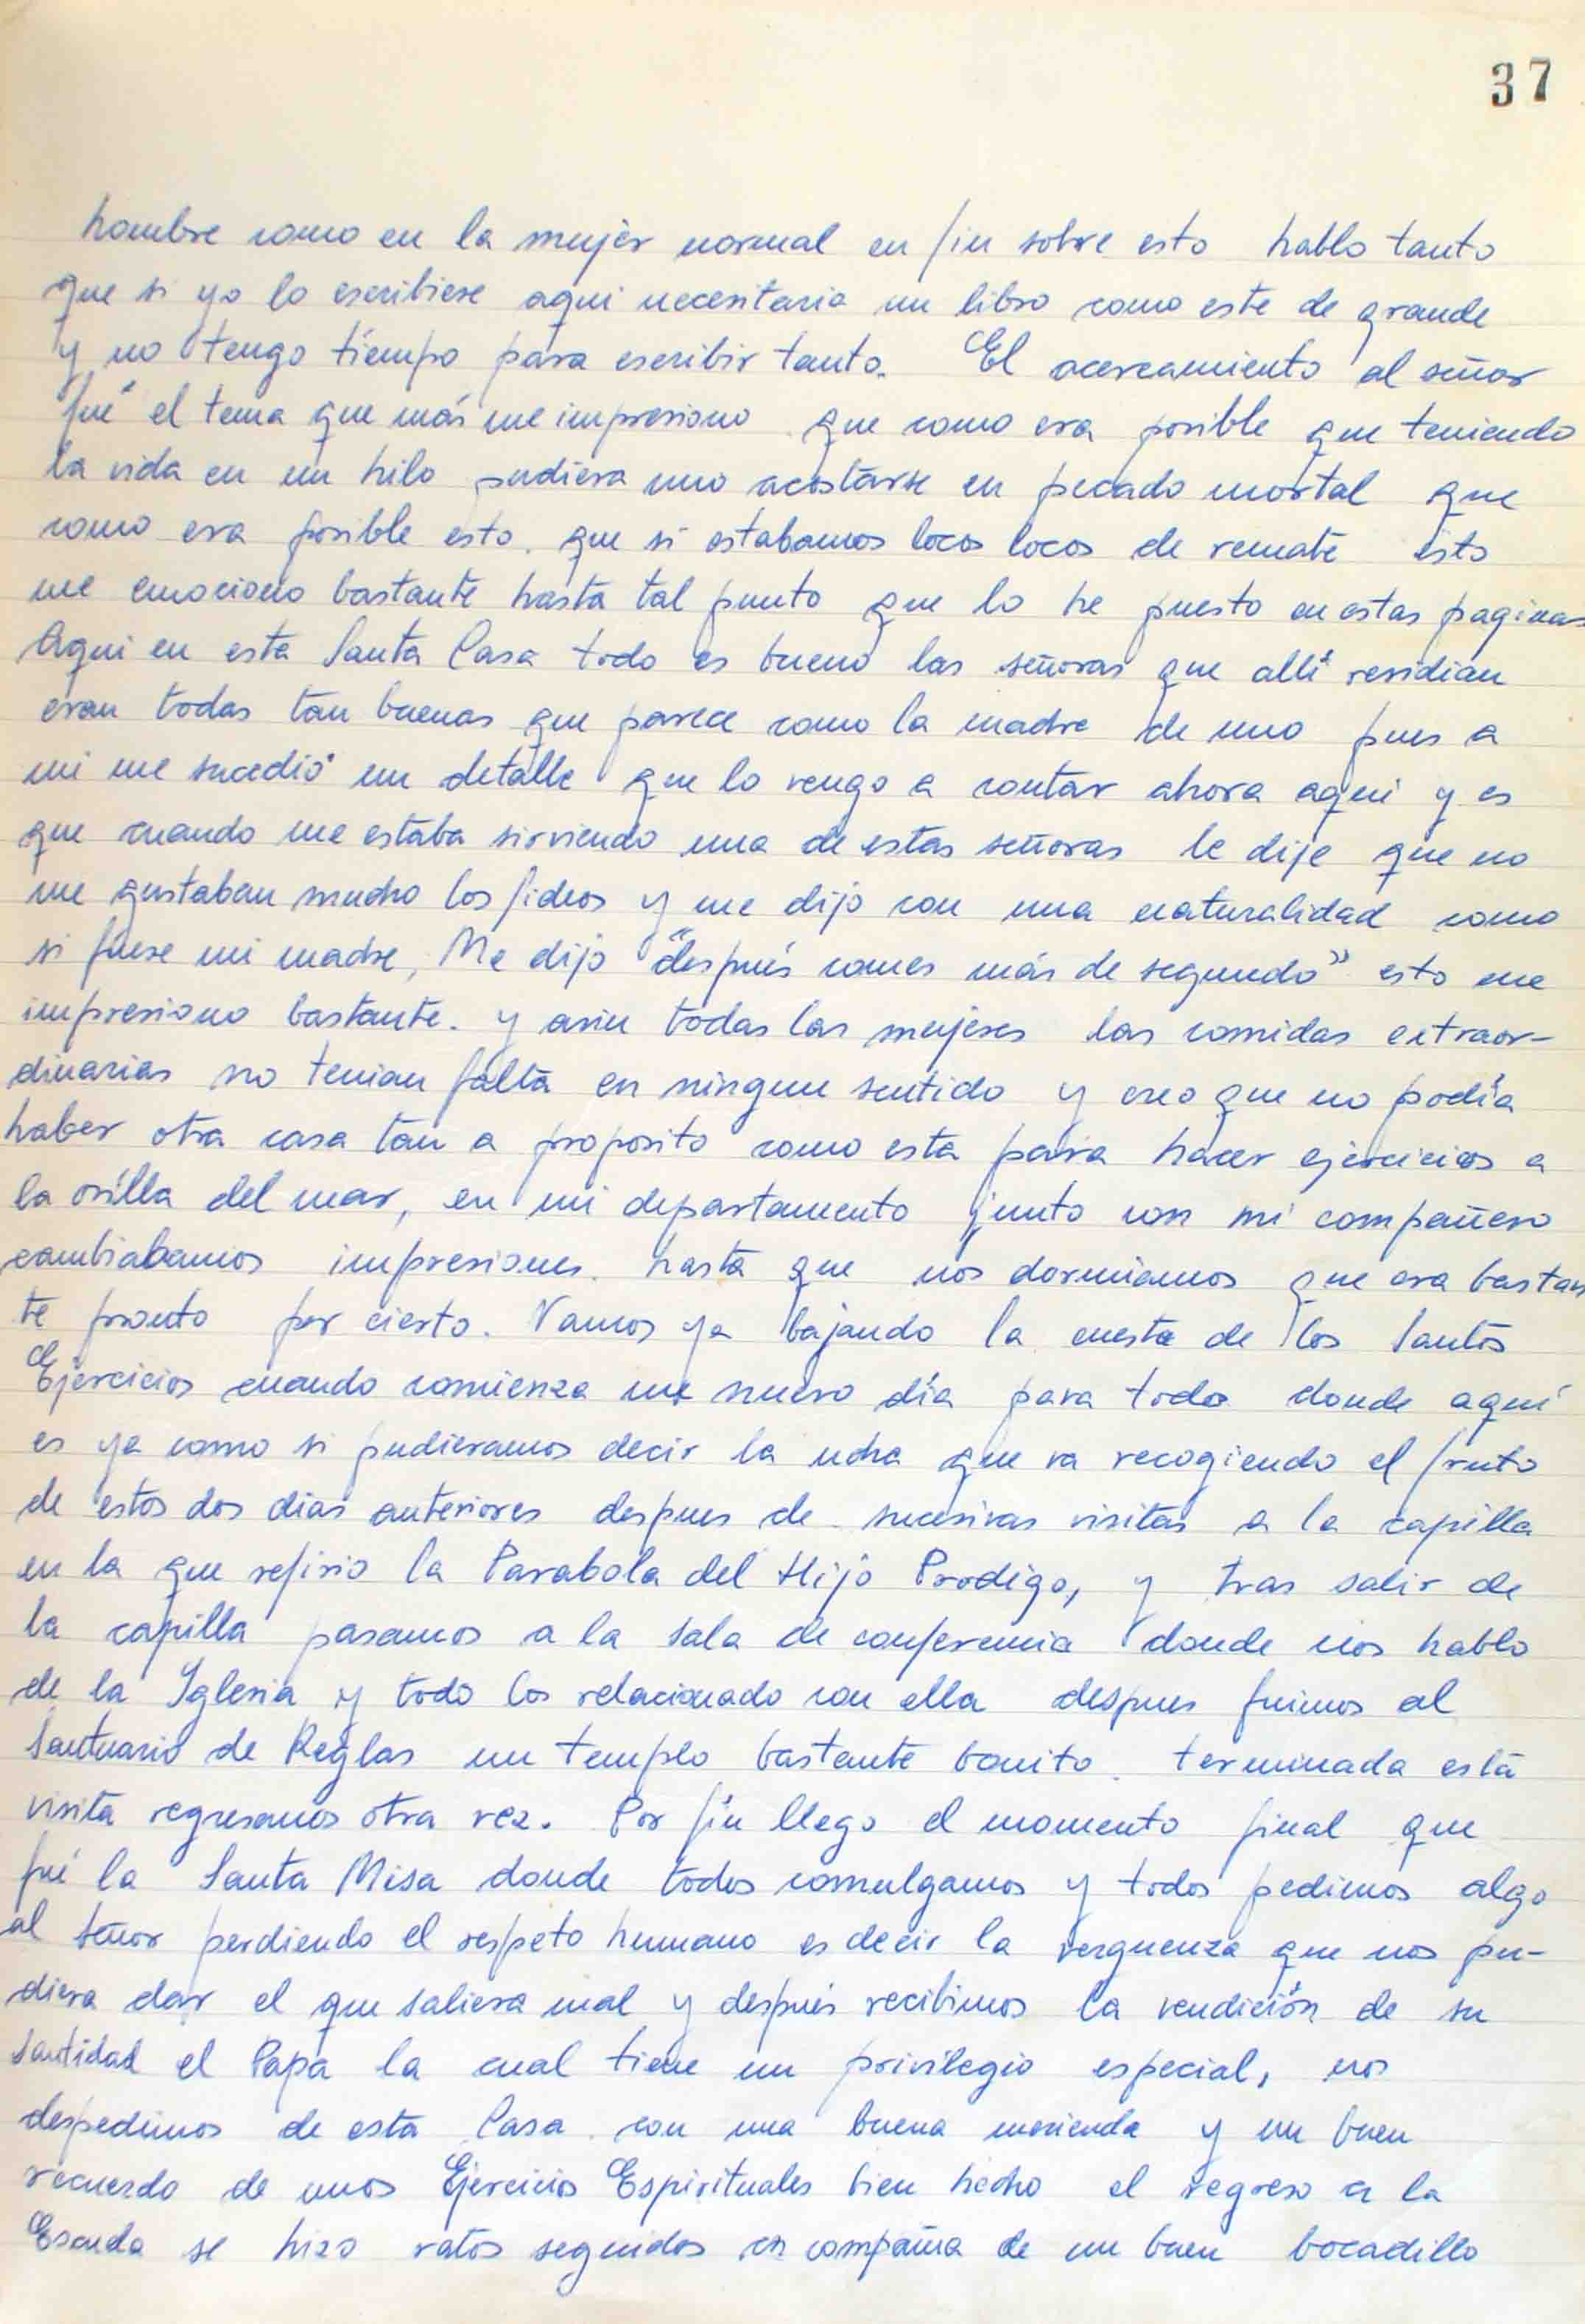 37
hombre como en la mujer normal en fin sobre esto hablo tanto
que si yo lo escribiese aqui necesitaria un libro como este de grande
y no tengo tiempo para escribir tanto. El acercamiento al señor
fué el tema que más me impresiono que como era posible que teniendo
la vida en un hilo pudiera uno acostarse en pecado mortal que
como era posible esto. que si estabamos locos locos de remate esto
me emociono bastante hasta tal punto que lo he puesto en estas paginas
Aqui en esta Santa Casa todo es bueno las señoras que allí residian
eran todas tan buenas que parece como la madre de uno pues a
mi me sucedió un detalle que lo vengo a contar ahora aqui y es
que cuando me estaba sirviendo una de estas señoras le dije que no
me gustaban mucho los fideos y me dijo con una naturalidad como
si fuese mi madre, Me dijo "después comes más de segundo" esto me
impresiono bastante. y asin todas las mujeres las comidas extraor-
dinarias no tenian falta en ningun sentido y creo que no podía
haber otra casa tan a proposito como esta para hacer ejercicios a
la orilla del mar, en mi departamento junto con mi compañero
cambiabamos impresiones. hasta que nos dormiamos que era bastan
te pronto por cierto. Vamos ya bajando la cuesta de los Santos
Ejercicios cuando comienza un nuevo día para todo donde aquí
es ya como si pudieramos decir la que va recogiendo el fruto
de estos dos dias anteriores despues de sucesivas visitas a la capilla
en la que refirio la Parabola del Hijo Prodigo, y tras salir de
la capilla pasamos a la sala de conferencia donde nos hablo
de la Iglesia y todo los relacionado con ella despues fuimos al
Santuario de Reglas un templo bastante bonito. terminada esta
visita regresamos otra vez. Por fin llego el momento final que
fué la Santa Misa donde todos comulgamos y todos pedimos algo
al Señor perdiendo el respeto humano es decir la verguenza que nos pu-
diera dar el que saliera mal y después recibimos la vendición de su
Santidad el Papa la cual tiene un privilegio especial, nos
despedimos de esta Casa con una buena merienda y un buen
recuerdo de unos Ejercicios Espirituales bien hecho el regreso a la
Escuela se hizo ratos seguidos en compañia de un buen bocadillo